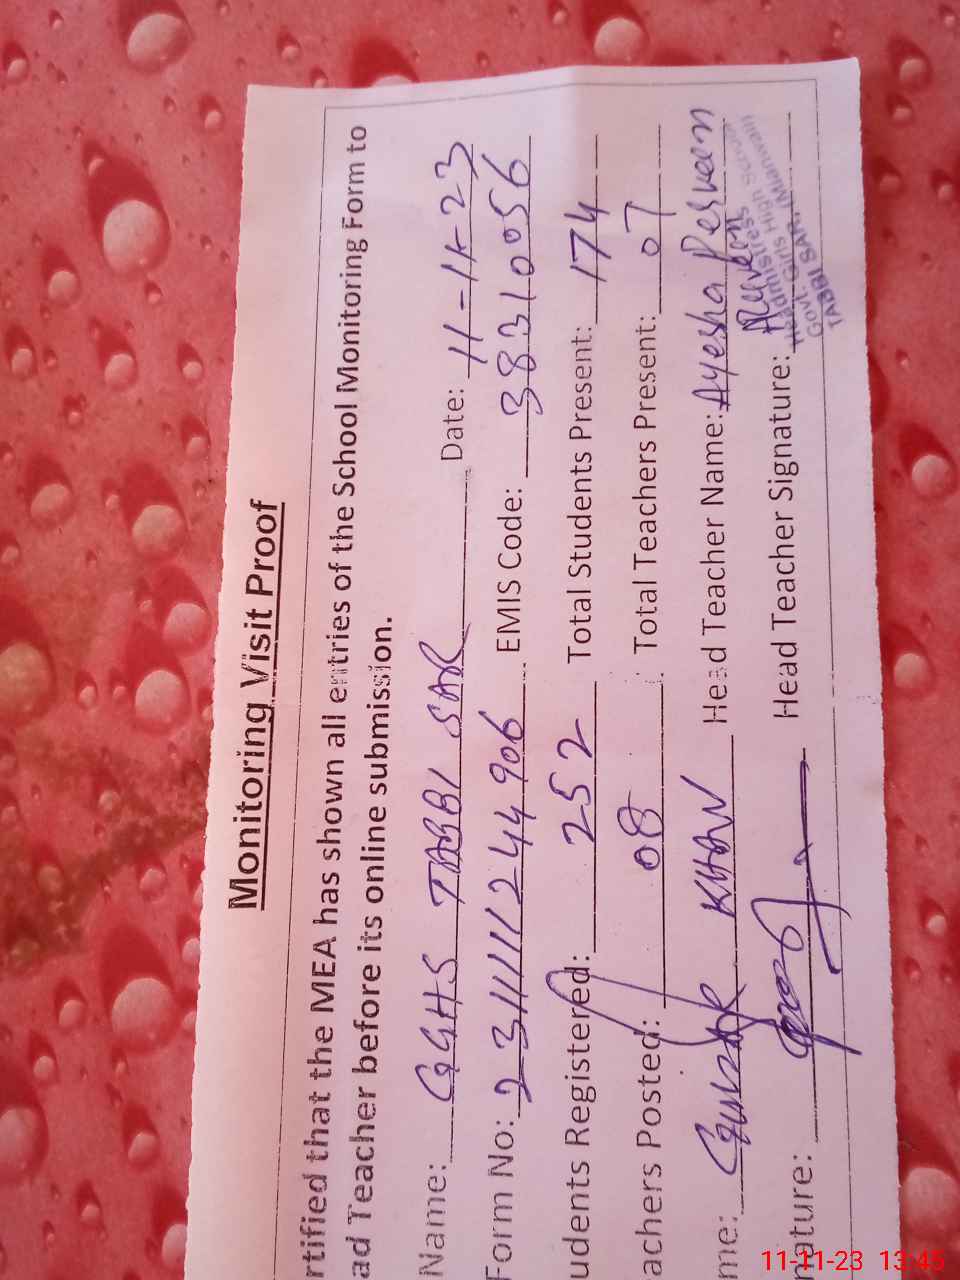 Monitoring Visit Proof
rtified that the MEA has shown all entries of the School Monitoring Form to
ad Teacher before its online submission.
Name: GGHS TABBI SAR Date: 11-11-23
Form No: 2311111244906 EMIS Code: 38310056
udents Registered: 252 Total Students Present: 174
achers Posted: 08 Total Teachers Present: 07
me: Gulzar KHAN Head Teacher Name: Ayesha Perveen
nature: Head Teacher Signature:
Headmistress
Govt. Girls High School
TABBI SAR, (Mianwali)
11-11-23 13:45